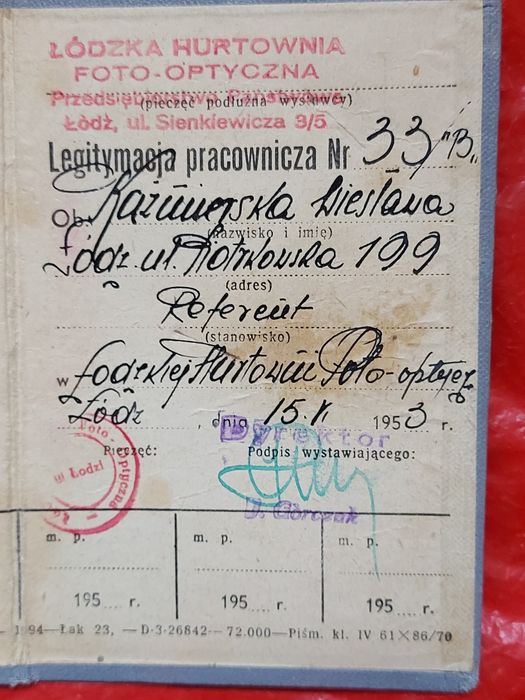 ŁÓDZKA HURTOWNIA
FOTO-OPTYCZNA
Przedsiębiorstwo Państwowe
(pieczęć podłużna wystawcy)
Łódź, ul. Sienkiewicza 3/5
Legitymacja pracownicza Nr 33/"B"
Ob. Kaźmierska Wiesława
(nazwisko i imię)
Łódź ul. Piotrkowska 199
(adres)
Referent
(stanowisko)
w Łodzkiej Hurtowni Foto-optycz
Łódź, dnia 15.V. 1953 r.
Dyrektor
Pieczęć: Podpis wystawiającego:
Foto-Optyczna
w Łodzi
J. Górczak
m. p. m. p. m. p.
195 .... r. 195 .... r. 195 .... r.
94—Łak 23, —D-3-26842—72.000—Piśm. kl. IV 61×86/70